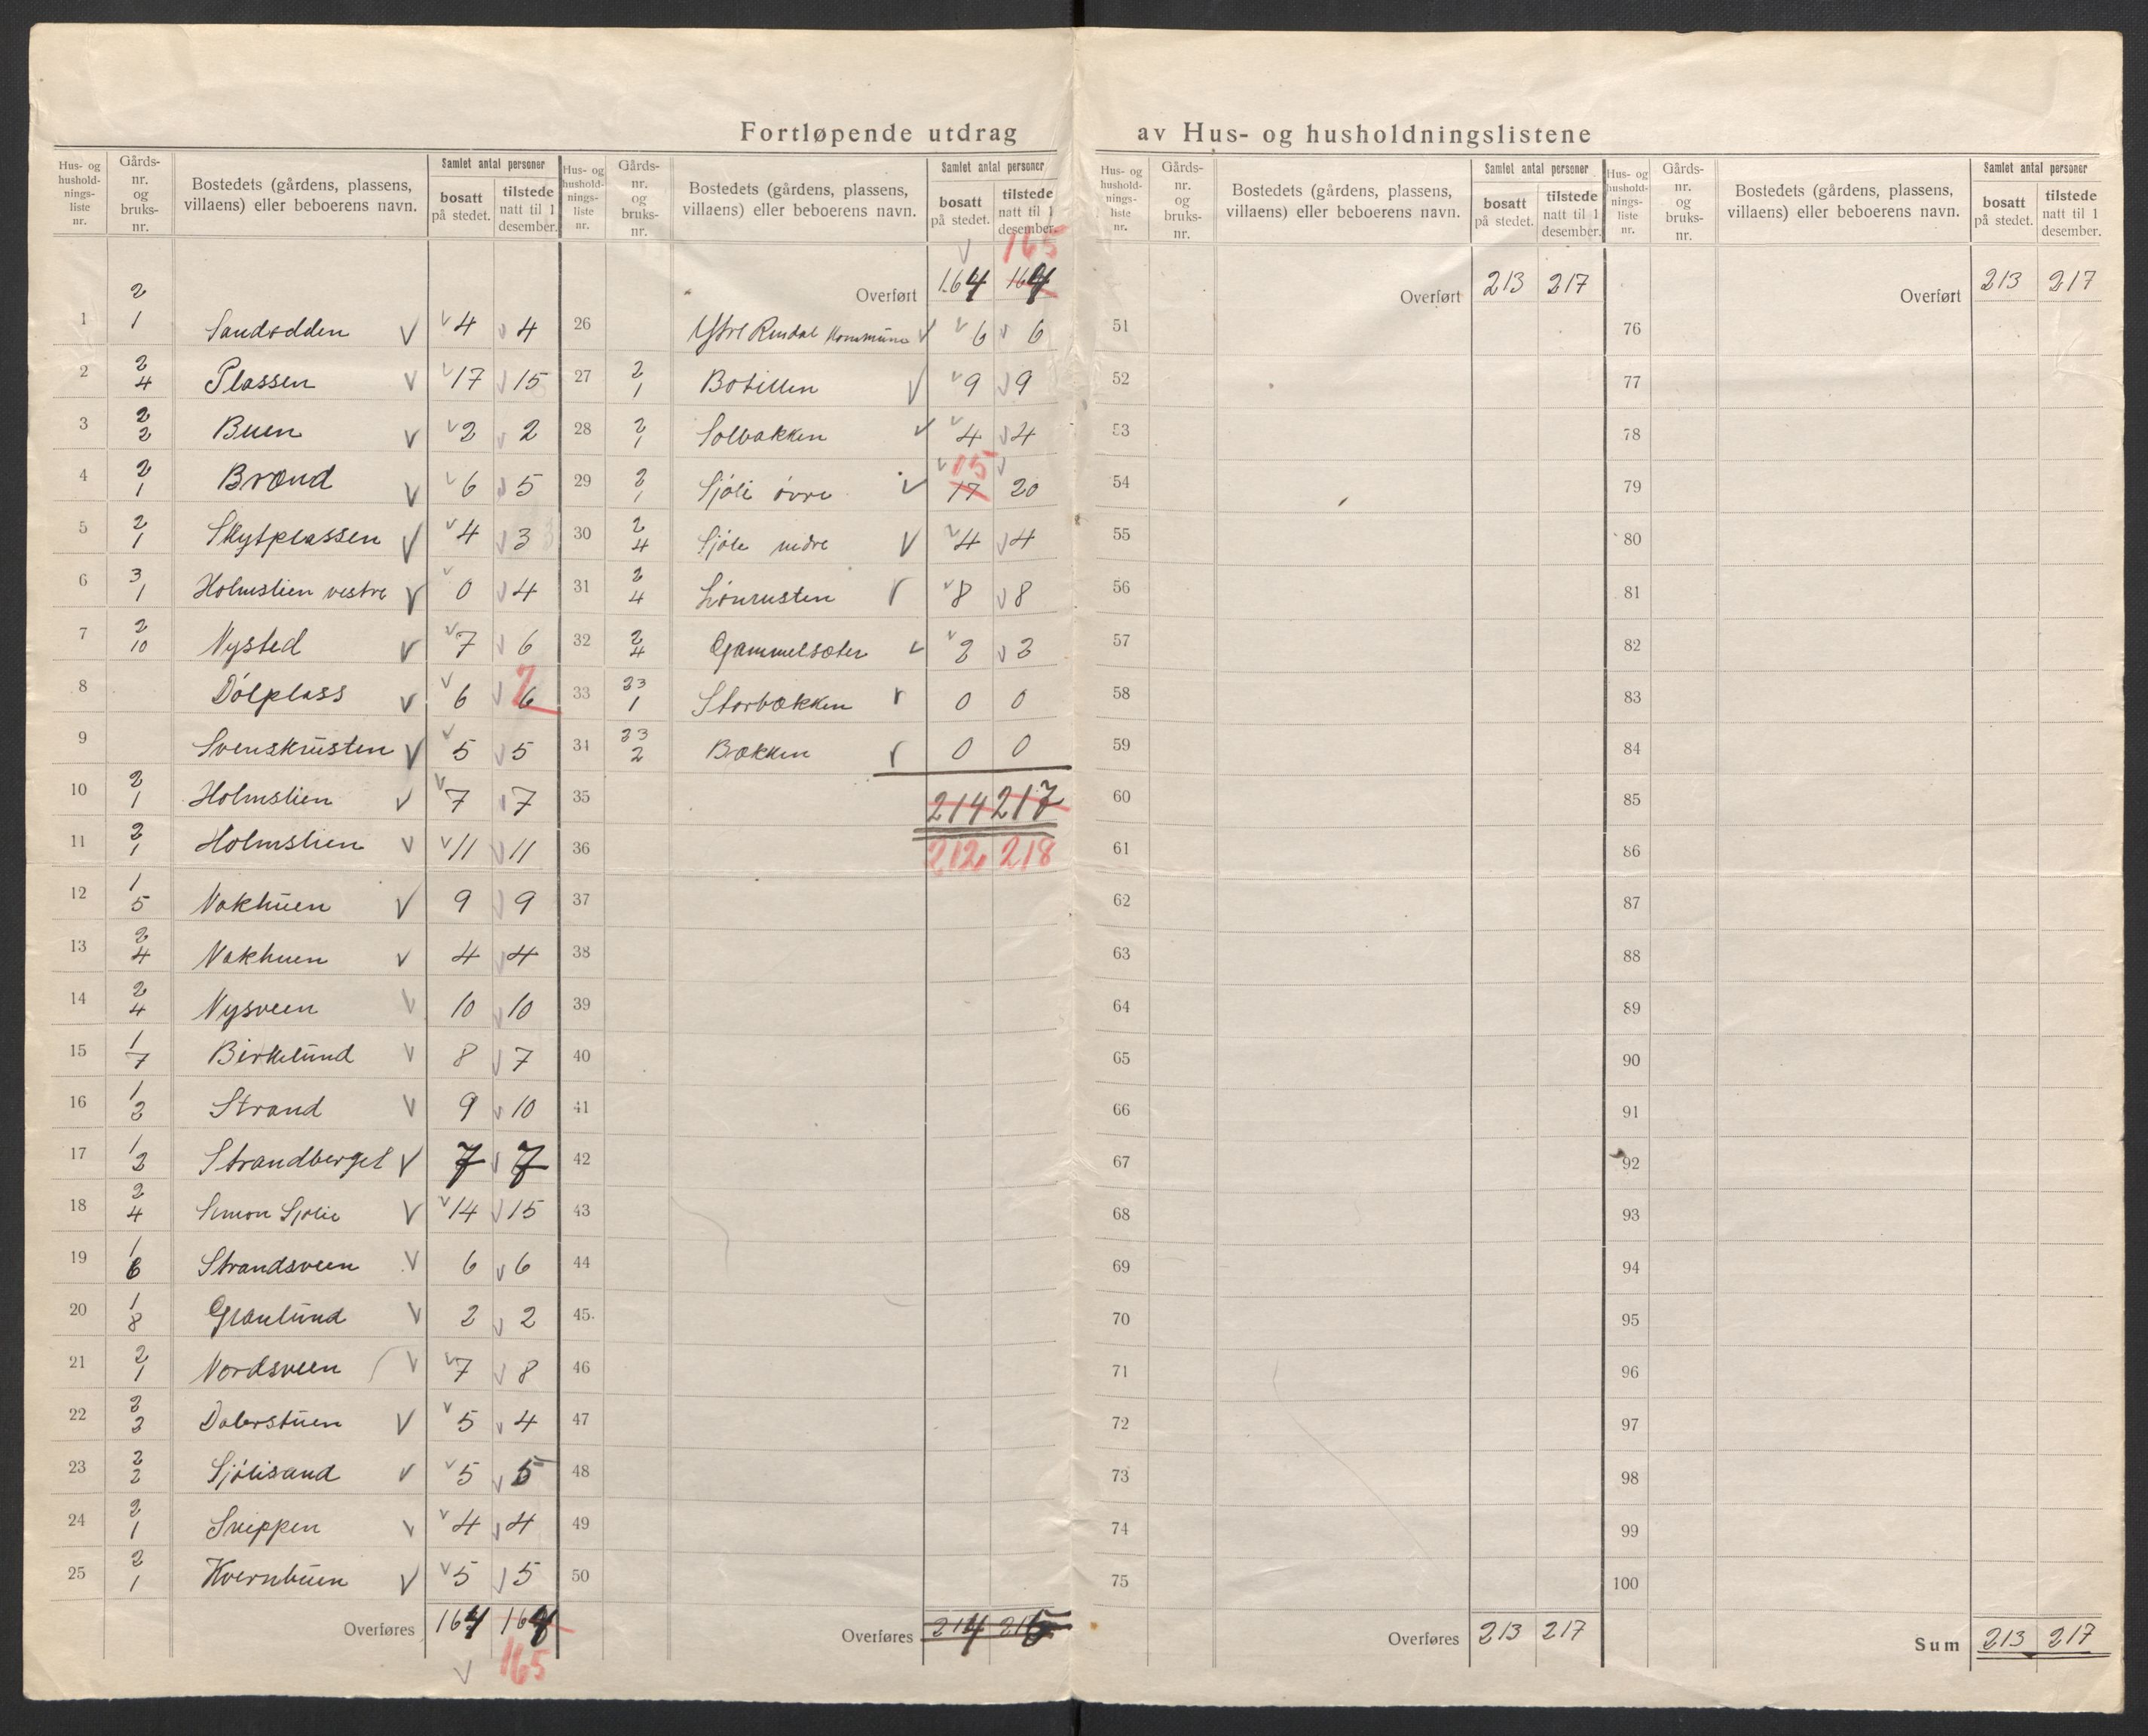 Fortløpende utdrag av Hus- og husholdningslistene
Hus- og husholdningsliste nr. | Gårds-nr. og bruks-nr. | Bostedets (gårdens, plassens, villaens) eller beboerens navn. | Samlet antal personer bosatt på stedet. | tilstede natt til 1 desember.
1 | 2 1 | Sandodden V | V 4 | V 4
2 | 2 4 | Plassen V | V 17 | V 15
3 | 2 2 | Buen V | V 2 | V 2
4 | 2 1 | Brænd V | V 6 | V 5
5 | 2 1 | Skytplassen V | V 4 | V 3
6 | 3 1 | Holmslien vestre V | V 0 | V 4
7 | 2 10 | Nysted V | V 7 | V 6
8 | Dølplass V | V 6 | V 6 7
9 | Svenskrusten V | V 5 | V 5
10 | 2 1 | Holmslien V | V 7 | V 7
11 | 2 1 | Holmslien V | V 11 | V 11
12 | 1 5 | Nakhuen V | 9 | V 9
13 | 2 4 | Nakhuen V | 4 | V 4
14 | 2 4 | Nysveen V | 10 | V 10
15 | 1 7 | Birkelund V | 8 | V 7
16 | 1 2 | Strand V | 9 | V 10
17 | 1 2 | Strandberget V | 7 | V 7
18 | 2 4 | Simon Sjølie V | V 14 | V 15
19 | 1 6 | Strandsveen V | 6 | V 6
20 | 1 8 | Granlund V | 2 | V 2
21 | 2 1 | Nordsveen V | V 7 | V 8
22 | 2 3 | V | V 5 | V 4
23 | 2 2 | Sjølisand V | V 5 | V 5
24 | 2 1 | Sneppen V | V 4 | V 4
25 | 2 1 | Kvernbuen V | V 5 | V 5
Overføres | 164 | 164
V 165
Hus- og husholdningsliste nr. | Gårds-nr. og bruks-nr. | Bostedets (gårdens, plassens, villaens) eller beboerens navn. | Samlet antal personer bosatt på stedet. | tilstede natt til 1 desember.
V 165
Overført | 164 | 164
26 | Ytre Rendal kommune V | V 6 | V 6
27 | 2 1 | Botillen V | V 9 | V 9
28 | 2 1 | Solbakken V | V 4 | V 4
29 | 2 1 | Sjøli øvre V | V 17 15 | V 20
30 | 2 4 | Sjøli nedre V | V 4 | V 4
31 | 2 4 | Lønrusten V | V 8 | V 8
32 | 2 4 | Gammelsæter V | V 2 | V 2
33 | 23 1 | Storbækken V | 0 | 0
34 | 23 2 | Bækken V | 0 | 0
35 | 214 | 217
36 | 212 | 218
37
38
39
40
41
42
43
44
45.
46
47
48
49
50
Overføres | 214
Hus- og husholdningsliste nr. | Gårds-nr. og bruks-nr. | Bostedets (gårdens, plassens, villaens) eller beboerens navn. | Samlet antal personer bosatt på stedet. | tilstede natt til 1 desember.
Overført | 213 | 217
51
52
53
54
55
56
57
58
59
60
61
62
63
64
65
66
67
68
69
70
71
72
73
74
75
Overføres | 213 | 217
Hus- og husholdningsliste nr. | Gårds-nr. og bruks-nr. | Bostedets (gårdens, plassens, villaens) eller beboerens navn. | Samlet antal personer bosatt på stedet. | tilstede natt til 1 desember.
Overført | 213 | 217
76
77
78
79
80
81
82
83
84
85
86
87
88
89
90
91
92
93
94
95
96
97
98
99
100
Sum | 213 | 217